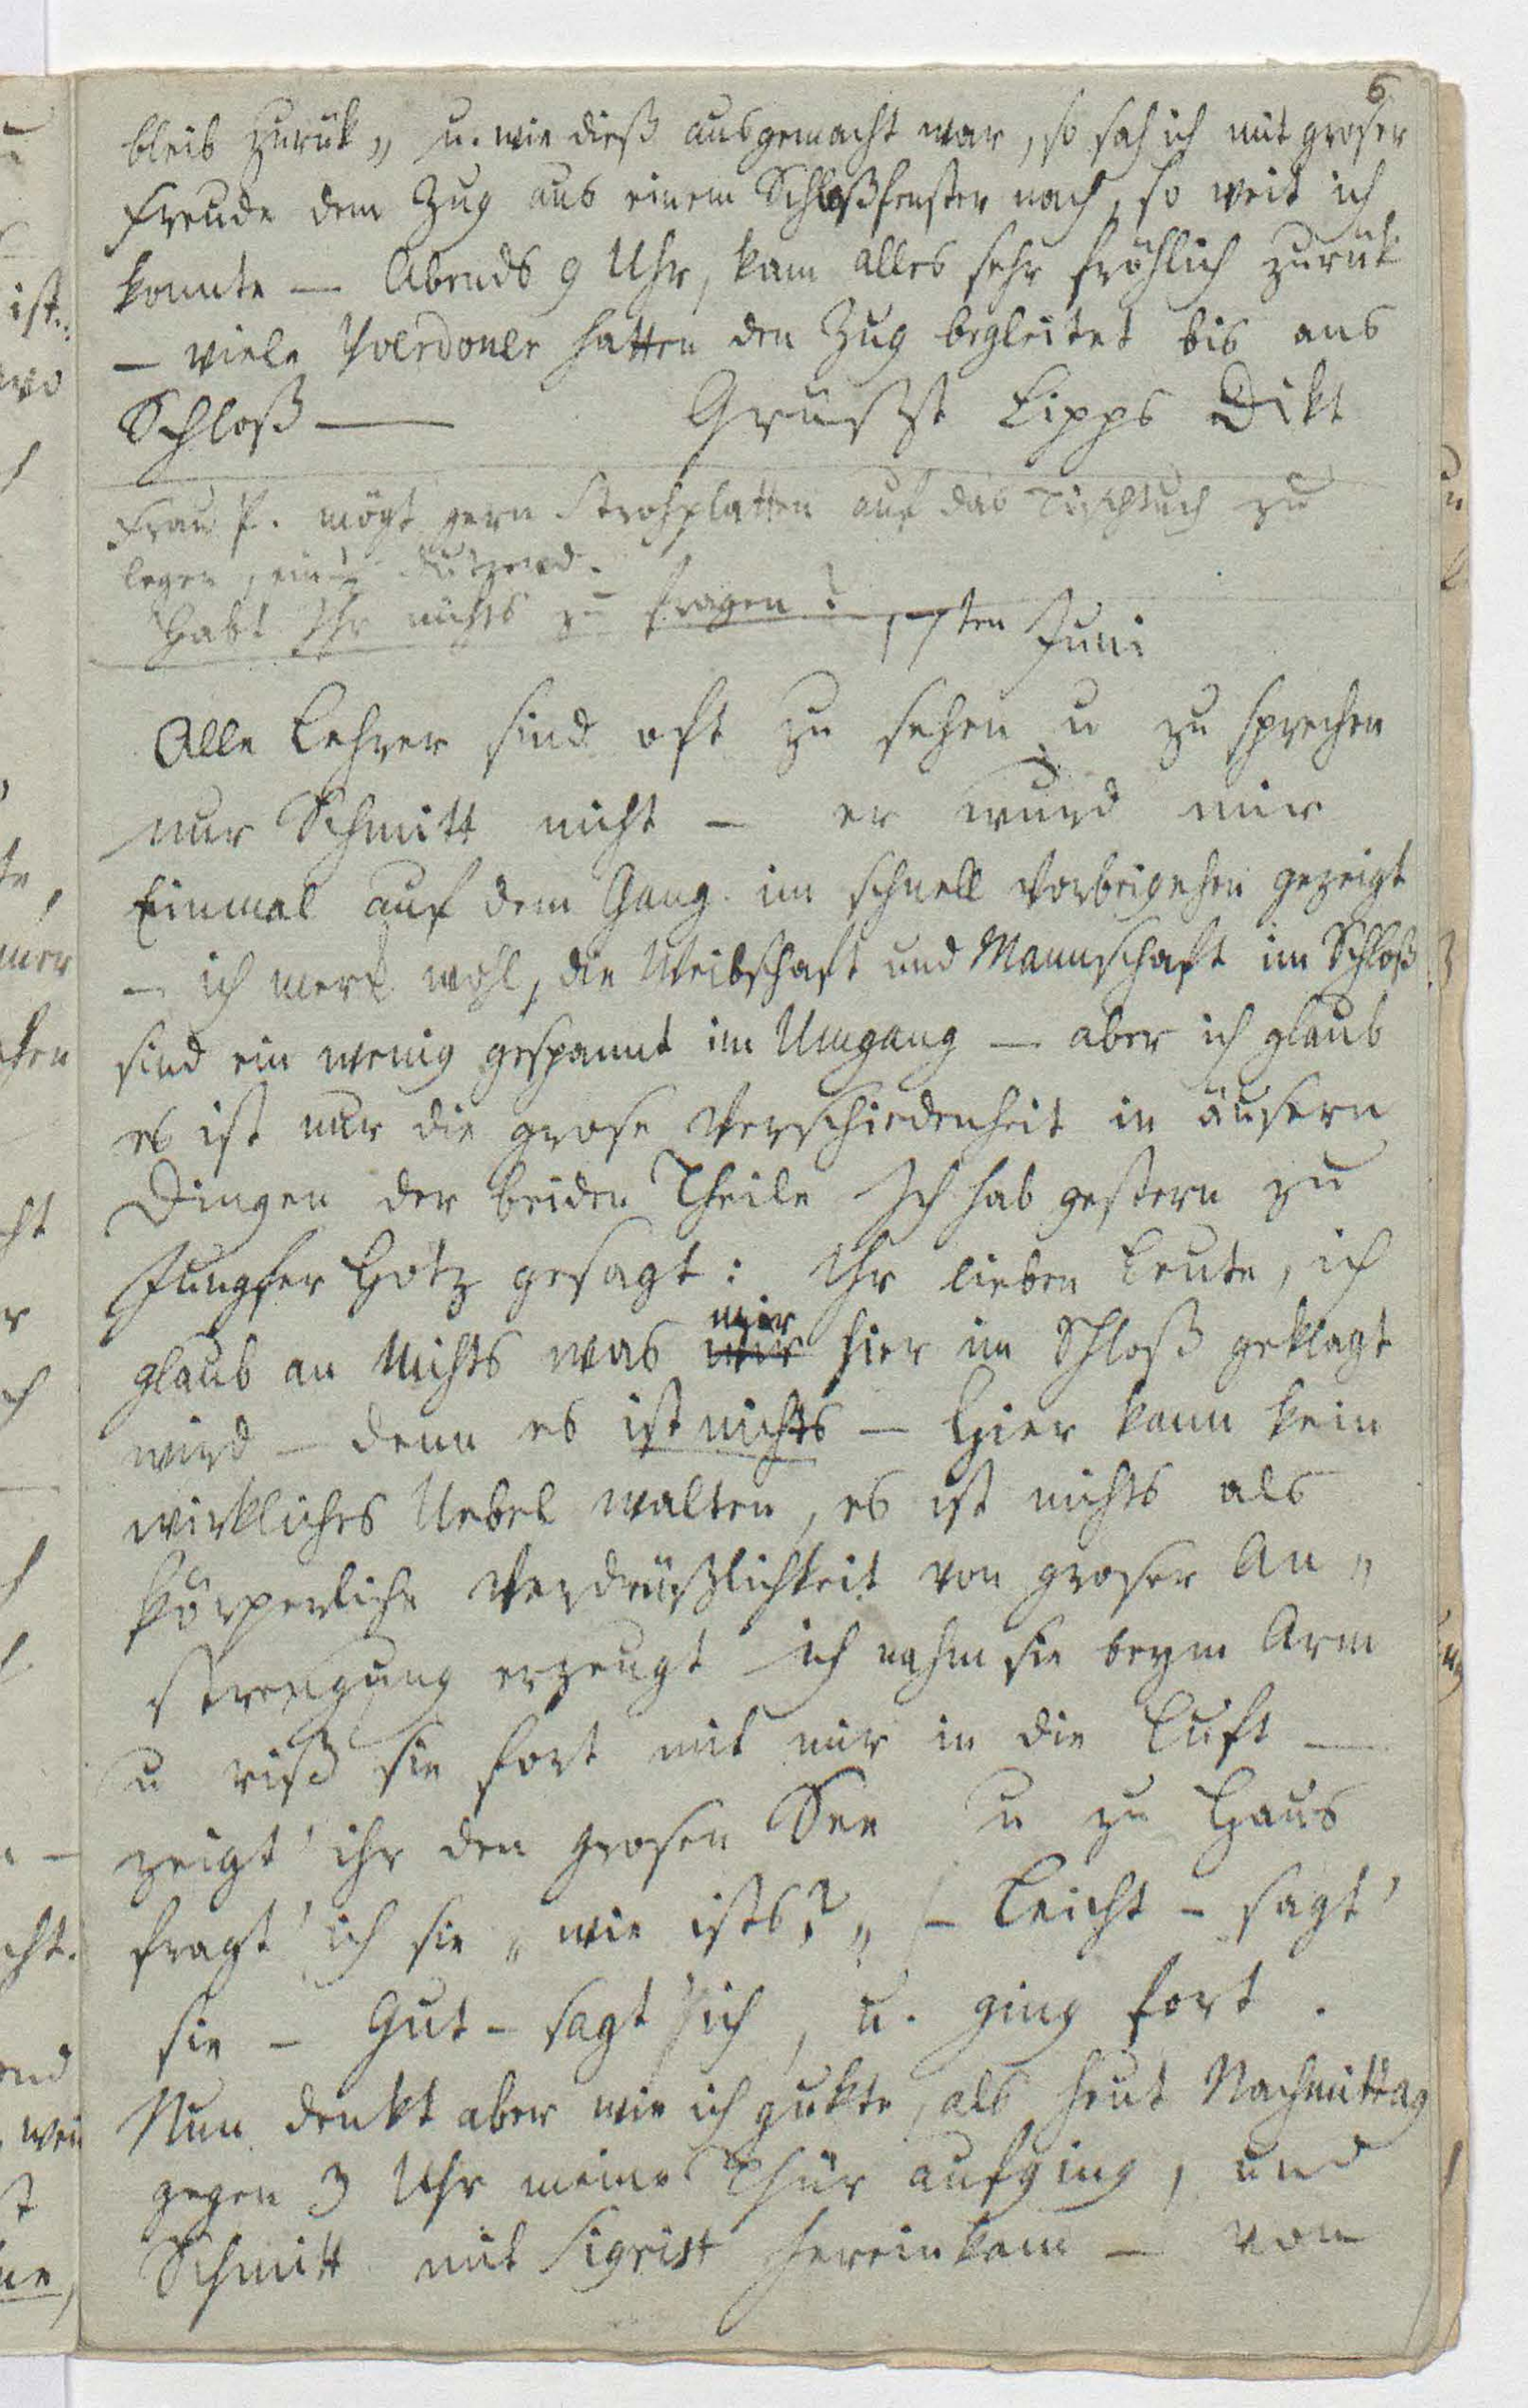 6
bleib zurük „ u. wie dieß ausgemacht war, so sah ich mit groser
Freude dem Zug aus einem Schloßfenster nach, so weit ich
konnte — Abends 9 Uhr, kam alles sehr fröhlich zurük
— viele Yverdoner hatten den Zug begleitet bis ans
Schloß — Grüßt Lipps Dikt
Frau P. mögt gern Strohplatten auf das Tischtuch zu
legen, ein ½ Dutzend.
Habt Ihr nichts zu fragen?
17ten Juni
Alle Lehrer sind oft zu sehen u zu sprechen
nur Schmitt nicht — er wurd mir
Einmal auf dem Gang im schnell Vorbeigehen gezeigt
— ich merk wohl, die Weibschaft und Mannschaft im Schloß
sind ein wenig gespannt im Umgang — aber ich glaub
es ist nur die grose Verschiedenheit in äusern
Dingen der beiden Theile Ich hab gestern zu
Jungfer Hotz gesagt: Ihr lieben Leute, ich
mir
glaub an Nichts was wir hier im Schloß geklagt
wird — denn es ist nichts — Hier kann kein
wirkliches Uebel walten, es ist nichts als
körperliche Verdrüßlichkeit von groser An„
strengung erzeugt ich nahm sie beym Arm
u riß sie fort mit mir in die Luft —
zeigt' ihr den grosen See u zu Haus
fragt' ich sie „ wie ists? „ — Leicht — sagt'
sie — Gut — sagt' ich, u. ging fort.
Nun denkt aber wie ich gukte, als heut Nachmittag
gegen 3 Uhr meine Thür aufging, und
Schmitt mit Sigrist hereinkam — von